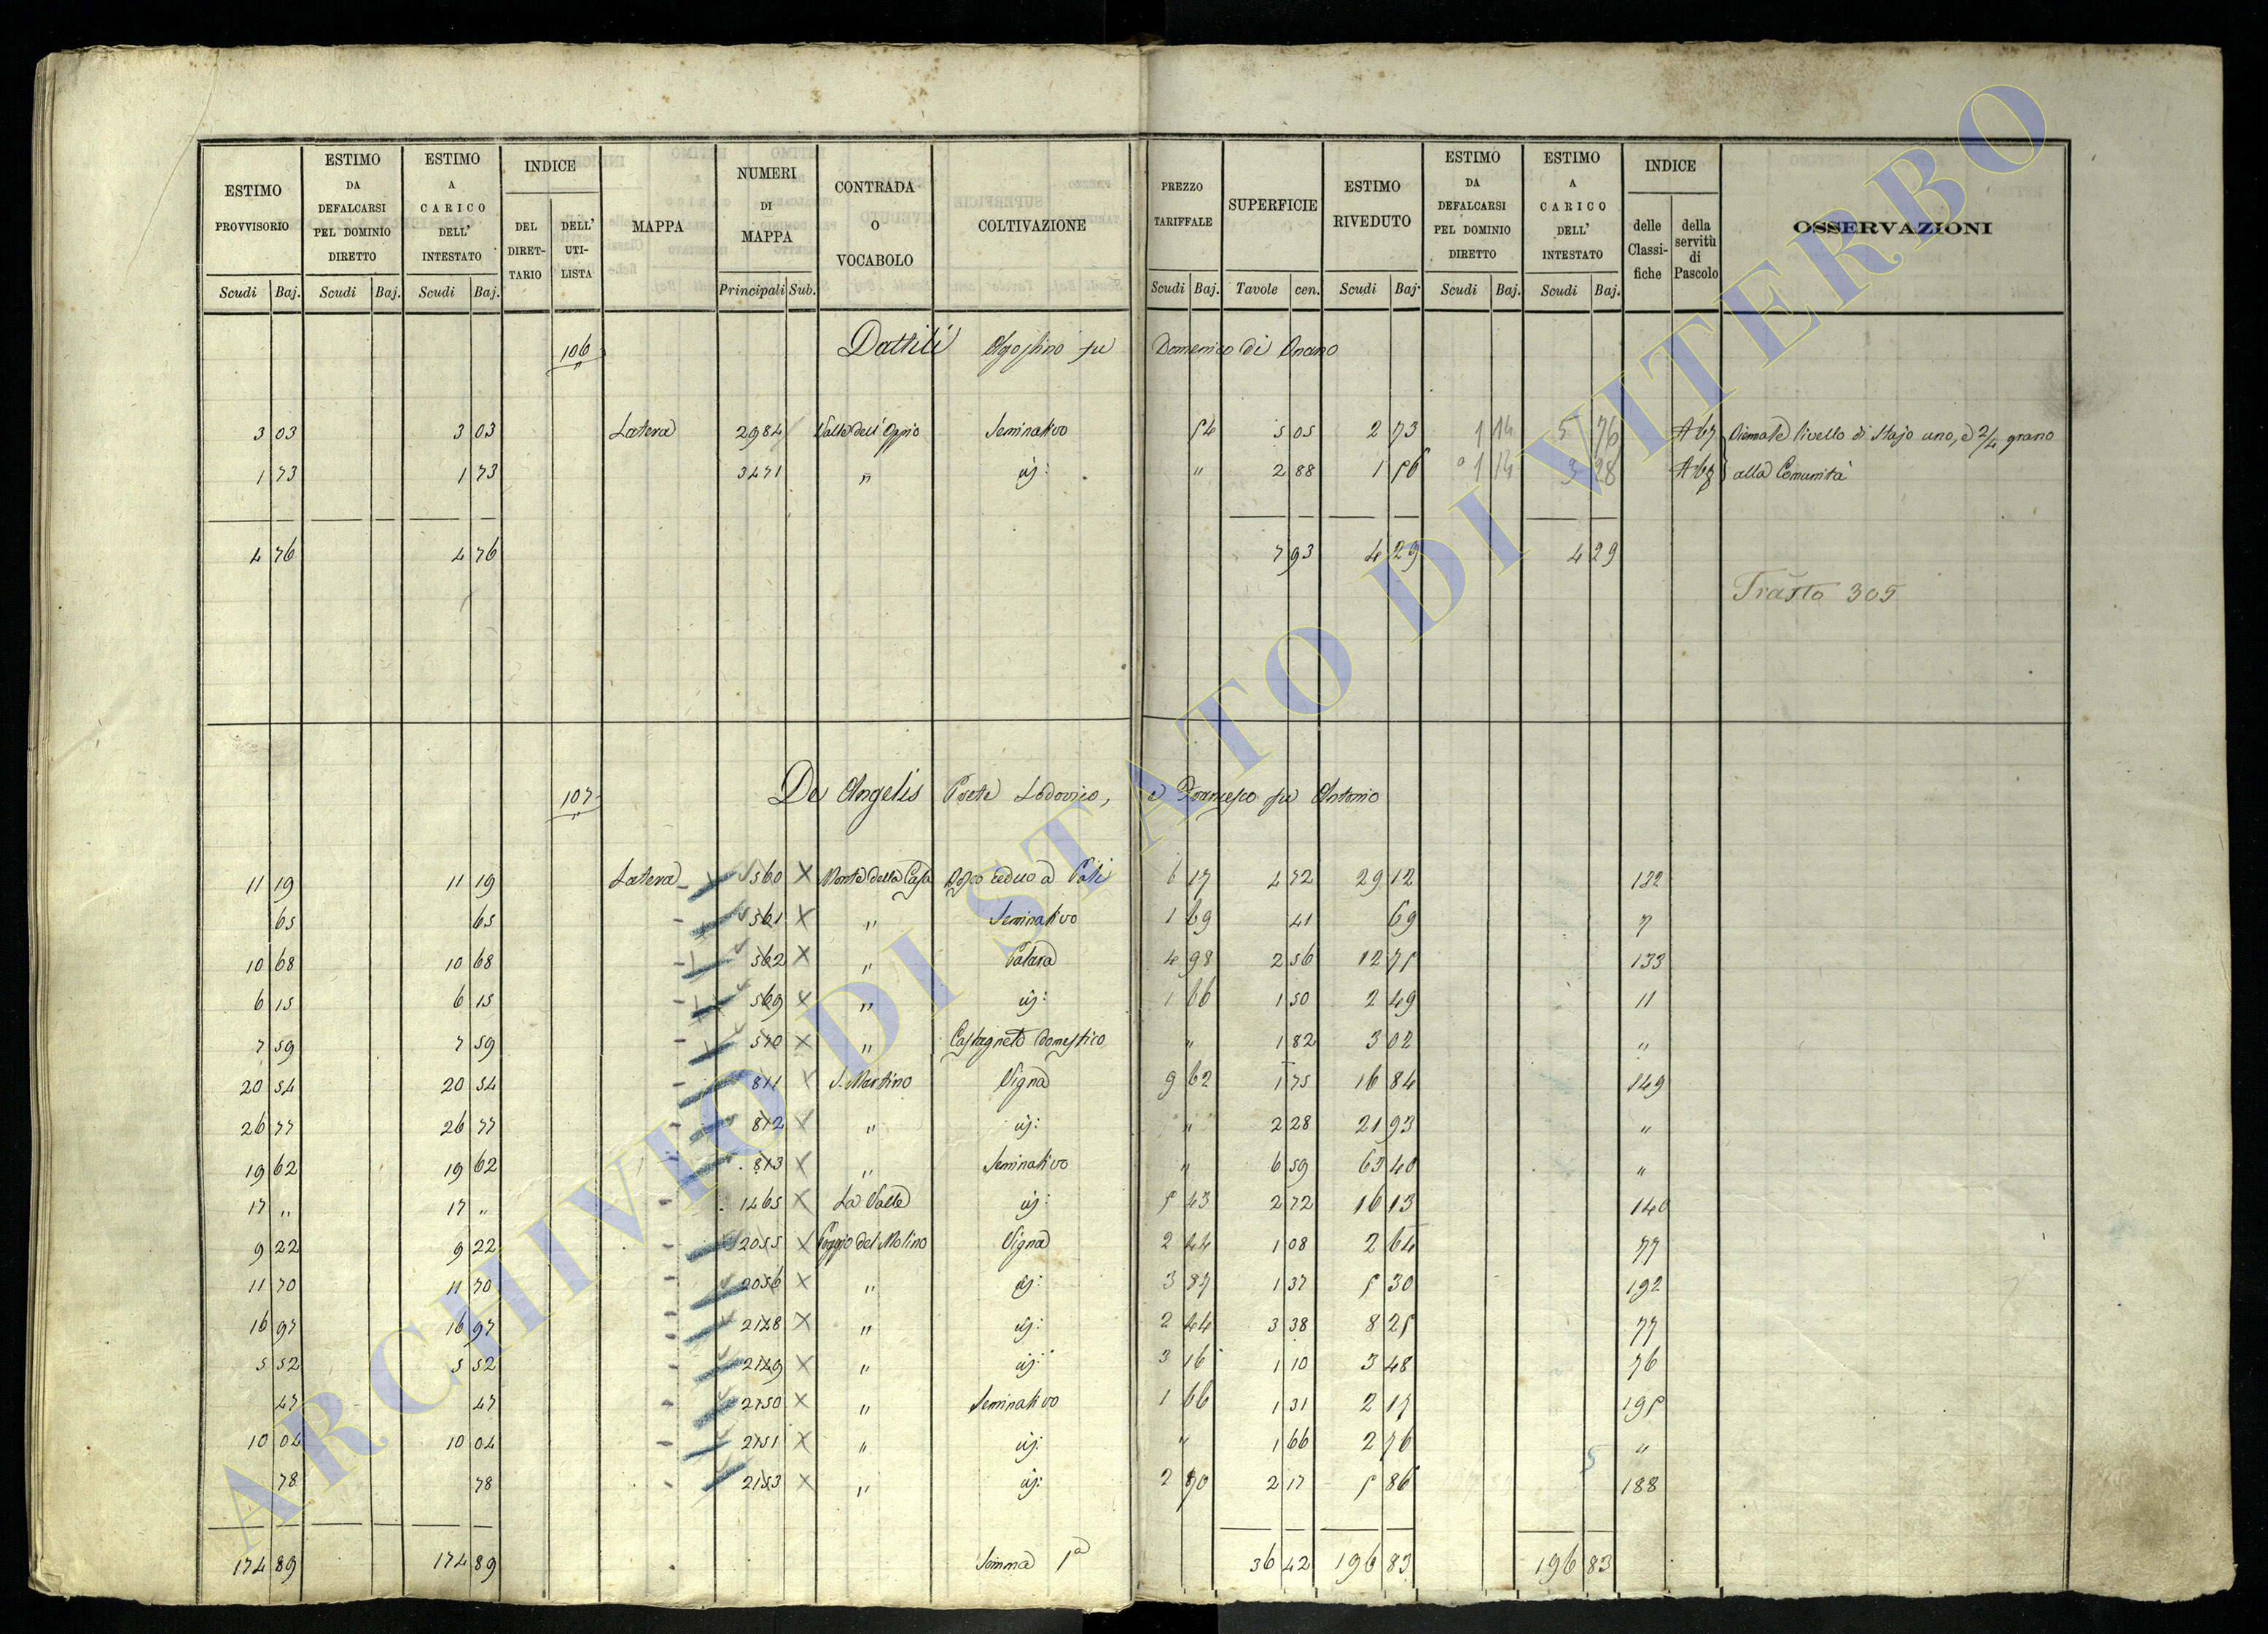 ESTIMO PROVVISORIO | ESTIMO DA DEFALCARSI PEL DOMINIO DIRETTO | ESTIMO A CARICO DELL' INTESTATO | INDICE | MAPPA | NUMERI DI MAPPA | CONTRADA O VOCABOLO | COLTIVAZIONE | PREZZO TARIFFALE | SUPERFICIE | ESTIMO RIVEDUTO | ESTIMO DA DEFALCARSI PEL DOMINIO DIRETTO | ESTIMO A CARICO DELL' INTESTATO | INDICE | OSSERVAZIONI
DEL DIRET-TARIO | DELL' UTI-LISTA | delle Classi-fiche | della servitù di Pascolo
Scudi | Baj. | Scudi | Baj. | Scudi | Baj. | Principali | Sub. | Scudi | Baj. | Tavole | cen. | Scudi | Baj. | Scudi | Baj. | Scudi | Baj.
106 Dattili Agostino fu Domenico di Onano
3 03 | 3 03 | Latera | 2984 | Valle dell' Oppio | Seminativo | 54 | 5 05 | 2 73 | 1 14 | 5 76 | A 67 | livello di Stajo uno, e 2/4 grano
1 73 | 1 73 | 3471 | " | id: | " | 2 88 | 1 56 | 1 14 | 3 28 | alla Comunità
4 76 | 4 76 | 7 93 | 4 29 | 4 29
Trasto 305
107 De Angelis Prete Lodovico, e Francesco fu Antonio
11 19 | 11 19 | Latera | 560 | X | Monte della Casa | Bosco ceduo a Pali | 6 17 | 4 72 | 29 12 | 132
65 | 65 | 561 | X | " | Seminativo | 1 69 | 41 | 69 | 7
10 68 | 10 68 | 562 | X | " | 4 98 | 2 56 | 12 75 | 133
6 15 | 6 15 | 569 | X | " | id: | 1 66 | 1 50 | 2 49 | 11
7 59 | 7 59 | 570 | X | " | Castagneto domestico | " | 1 82 | 3 02 | "
20 54 | 20 54 | 811 | X | S. Martino | Vigna | 9 62 | 1 75 | 16 84 | 149
26 77 | 26 77 | 812 | X | " | id: | " | 2 28 | 21 93 | "
19 62 | 19 62 | 813 | X | " | Seminativo | " | 6 59 | 63 40 | "
17 " | 17 " | 1465 | X | La Valle | id: | 5 43 | 2 72 | 16 13 | 140
9 22 | 9 22 | 2055 | X | Poggio del Molino | Vigna | 2 44 | 1 08 | 2 64 | 77
11 70 | 11 70 | 2056 | X | " | id: | 3 87 | 1 37 | 5 30 | 192
16 97 | 16 97 | 2148 | X | " | id: | 2 44 | 3 38 | 8 25 | 77
5 52 | 5 52 | 2149 | X | " | id: | 3 16 | 1 10 | 3 48 | 76
47 | 47 | 2150 | X | " | Seminativo | 1 66 | 1 31 | 2 17 | 195
10 04 | 10 04 | 2151 | X | " | id: | " | 1 66 | 2 76 | "
78 | 78 | 2153 | X | " | id: | 2 70 | 2 17 | 5 86 | 188
174 89 | 174 89 | Somma 1a | 36 42 | 196 83 | 196 83
ARCHIVIO DI STATO DI VITERBO